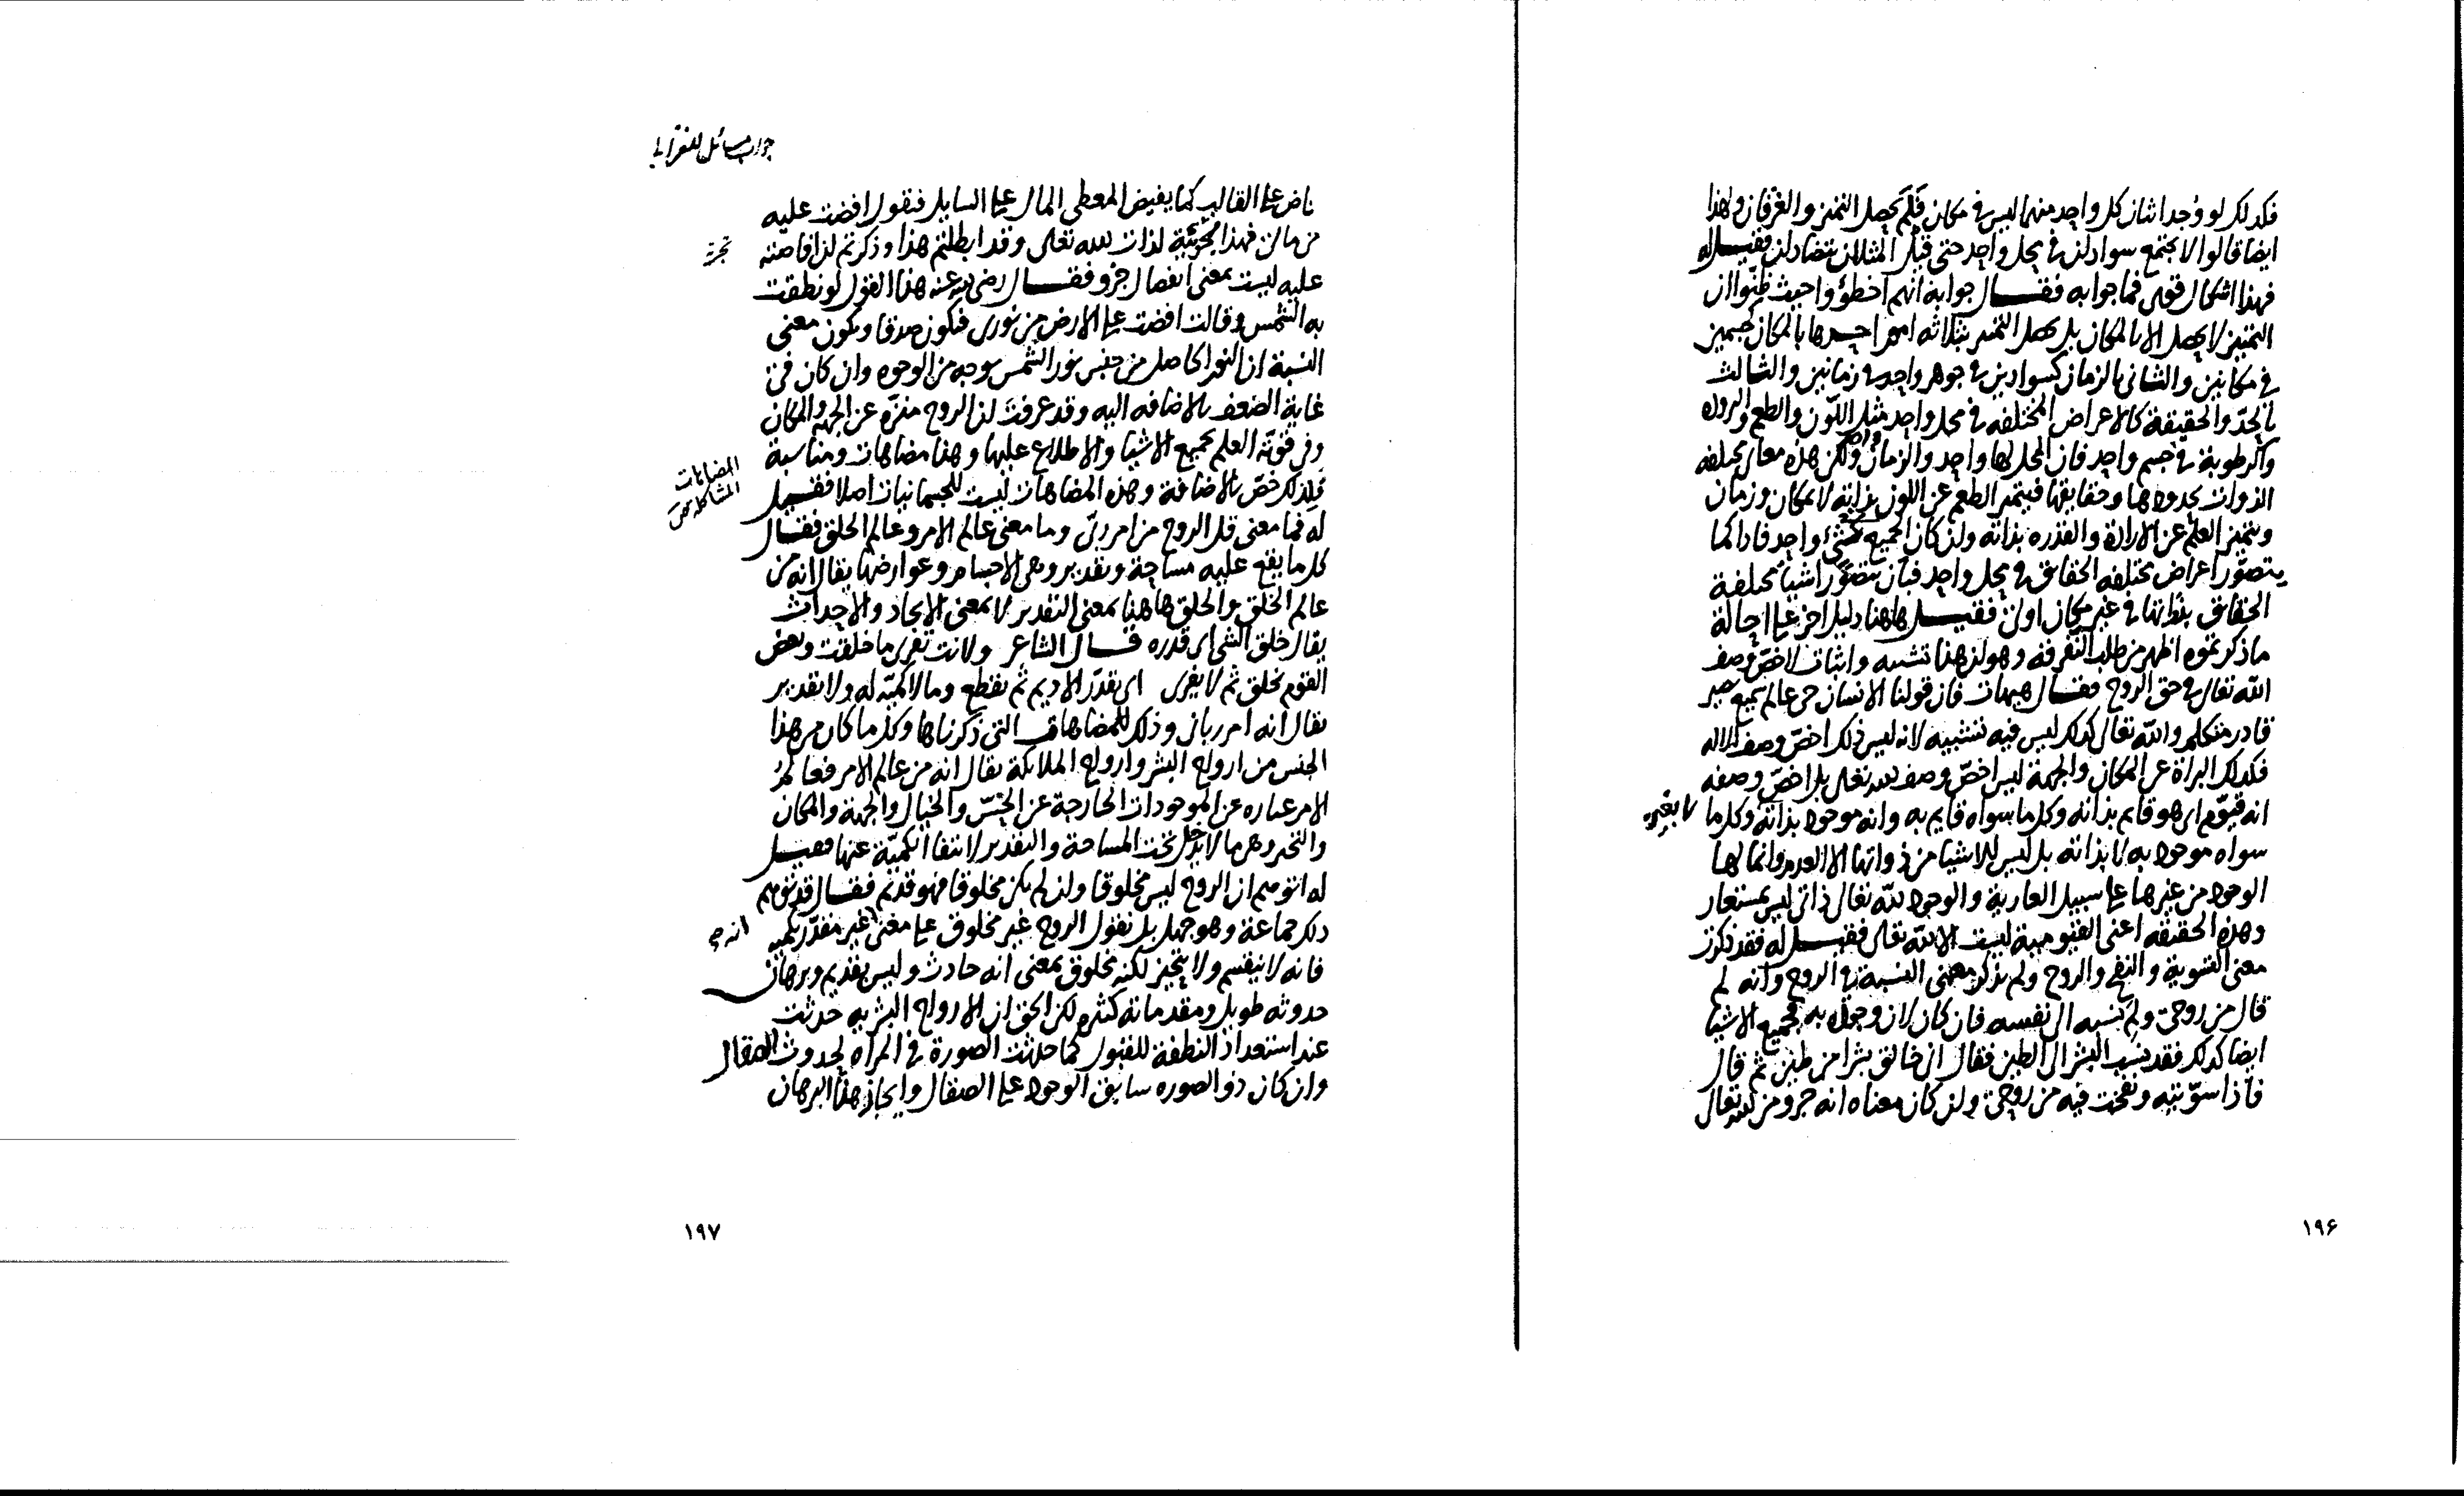 فكذلك لو وُجد اثنان كل واحد منهما ليس في مكان فلم يحصل التميز والفرقان ولهذا
ايضا قالوا لا يجتمع سوادان في محل واحد حتى قيل المثلان يتضادان فقيل له
فهذا اشكال قوى فما جوابه فقال جوابه انهم اخطؤوا حيث ظنّوا ان
التميز لا يحصل الا بالمكان بل يحصل التميز بثلاثه امور احدها بالمكان كجسمين
في مكانين والثانى بالزمان كسوادين في جوهر واحد في زمانين والثالث
بالحدّ والحقيقة كالاعراض المختلفه في محل واحد مثل اللون والطعم والبروده
والرطوبة في جسم واحد فان المحل لها واحد والزمان واحد ولكن هذه معان مختلفه
الذوات بحدودها وحقايقها فيتميز الطعم عن اللون بذاته لا بمكان وزمان
ويتميز العلم عن الارادة والقدره بذاته وان كان الجميع شئ واحد فاذا كما
يتصوّر اعراض مختلفه الحقائق في محل واحد فبأن يتصوّر اشيا مختلفة
الحقائق بذواتها في غير مكان اولى فقيل هاهنا دليل اخر على احالة
ما ذكرتموه اظهر من طلب التفرقه وهو ان هذا تشبيه واثبات لاخصّ وصف
الله تعالى في حق الروح فقال هيهات فان قولنا الانسان حى عالم سميع بصير
قادر متكلم والله تعالى كذلك ليس فيه تشبيه لانه ليس ذلك اخصّ وصف الاله
فكذلك البراة عن المكان والجهة ليس اخصّ وصف الله تعالى بل اخصّ وصفه
انه قيوّم اى هو قايم بذاته وكل ما سواه قايم به وانه موجود بذاته وكل ما
لا بغيره
سواه موجود به لا بذاته بل ليس للاشيا من ذواتها الا العدم وانما لها
الوجود من غيرها على سبيل العارية والوجود لله تعالى ذاتى ليس بمستعار
وهذه الحقيقه اعنى القيومية ليست الا لله تعالى فقيل له فقد ذكرت
معنى التسوية والنفخ والروح ولم تذكر معنى النسبة في الروح وانه لم
قال من روحى ولم ينسبه الى نفسه فان كان لان وجوده به فجميع الاشيا
ايضا كذلك فقد نسب البشر الى الطين فقال انى خالق بشرا من طين ثم قال
فاذا سوّيته ونفخت فيه من روحى وان كان معناه انه جزو من الله تعالى
١٩۶
جواب مسائل للغزالى
فاض على القالب كما يفيض المعطى المال على السايل فنقول افضت عليه
من مالى فهذا تجزئية لذات الله تعالى وقد ابطلتم هذا وذكرتم ان افاضته
تجزئة
عليه ليست بمعنى انفصال جزو فقال رضى الله عنه هذا القول لو نطقت
به الشمس وقالت افضت على الارض من نورى فيكون صدقا ويكون معنى
النسبة ان النور الحاصل من جنس نور الشمس بوجه من الوجوه وان كان في
غاية الضعف بالاضافه اليه وقد عرفت ان الروح منزّه عن الجهة والمكان
وفى قوّته العلم بجميع الاشيا والاطلاع عليها وهذا مضاهاة ومناسبة
فلذلك خصّ بالاضافة وهذه المضاهاة ليست للجسمانيات اصلا فقيل
المضاهات
المشاكله
له فما معنى قل الروح من امر ربّى وما معنى عالم الامر وعالم الخلق فقال
كل ما يقع عليه مساحة وتقدير وهى الاجسام وعوارضها يقال انه من
عالم الخلق والخلق هاهنا بمعنى التقدير لا بمعنى الايجاد والاحداث
يقال خلق الشى اى قدره قال الشاعر ولانت تفرى ما خلقت وبعض
القوم يخلق ثم لا يفرى اى يقدّر الاديم ثم يقطع وما لا كميّة له ولا تقدير
يقال انه امر ربانى وذلك للمضاهاة التى ذكرناها وكل ما كان من هذا
الجنس من ارواح البشر وارواح الملائكة يقال انه من عالم الامر فعالم
الامر عباره عن الموجودات الخارجة عن الحسّ والخيال والجهة والمكان
والتحيز وهو ما لا يدخل تحت المساحة والتقدير لانتفا الكميّة عنها فقيل
له اتوهم ان الروح ليس مخلوقا وان لم يكن مخلوقا فهو قديم فقال قد توهم
ذلك جماعة وهو جهل بل نقول الروح غير مخلوق على معنى غير مقدّر بكميه
انه
فانه لا ينقسم ولا يتحيز لكنه مخلوق بمعنى انه حادث وليس بقديم وبرهان
حدوثه طويل ومقدماته كثيره لكن الحق ان الارواح البشريه حدثت
عند استعداد النطفة للقبول كما حدثت الصورة في المراه لحدوث الصقال
وان كان ذو الصوره سابق الوجود على الصقال وايجاز هذا البرهان
١٩٧